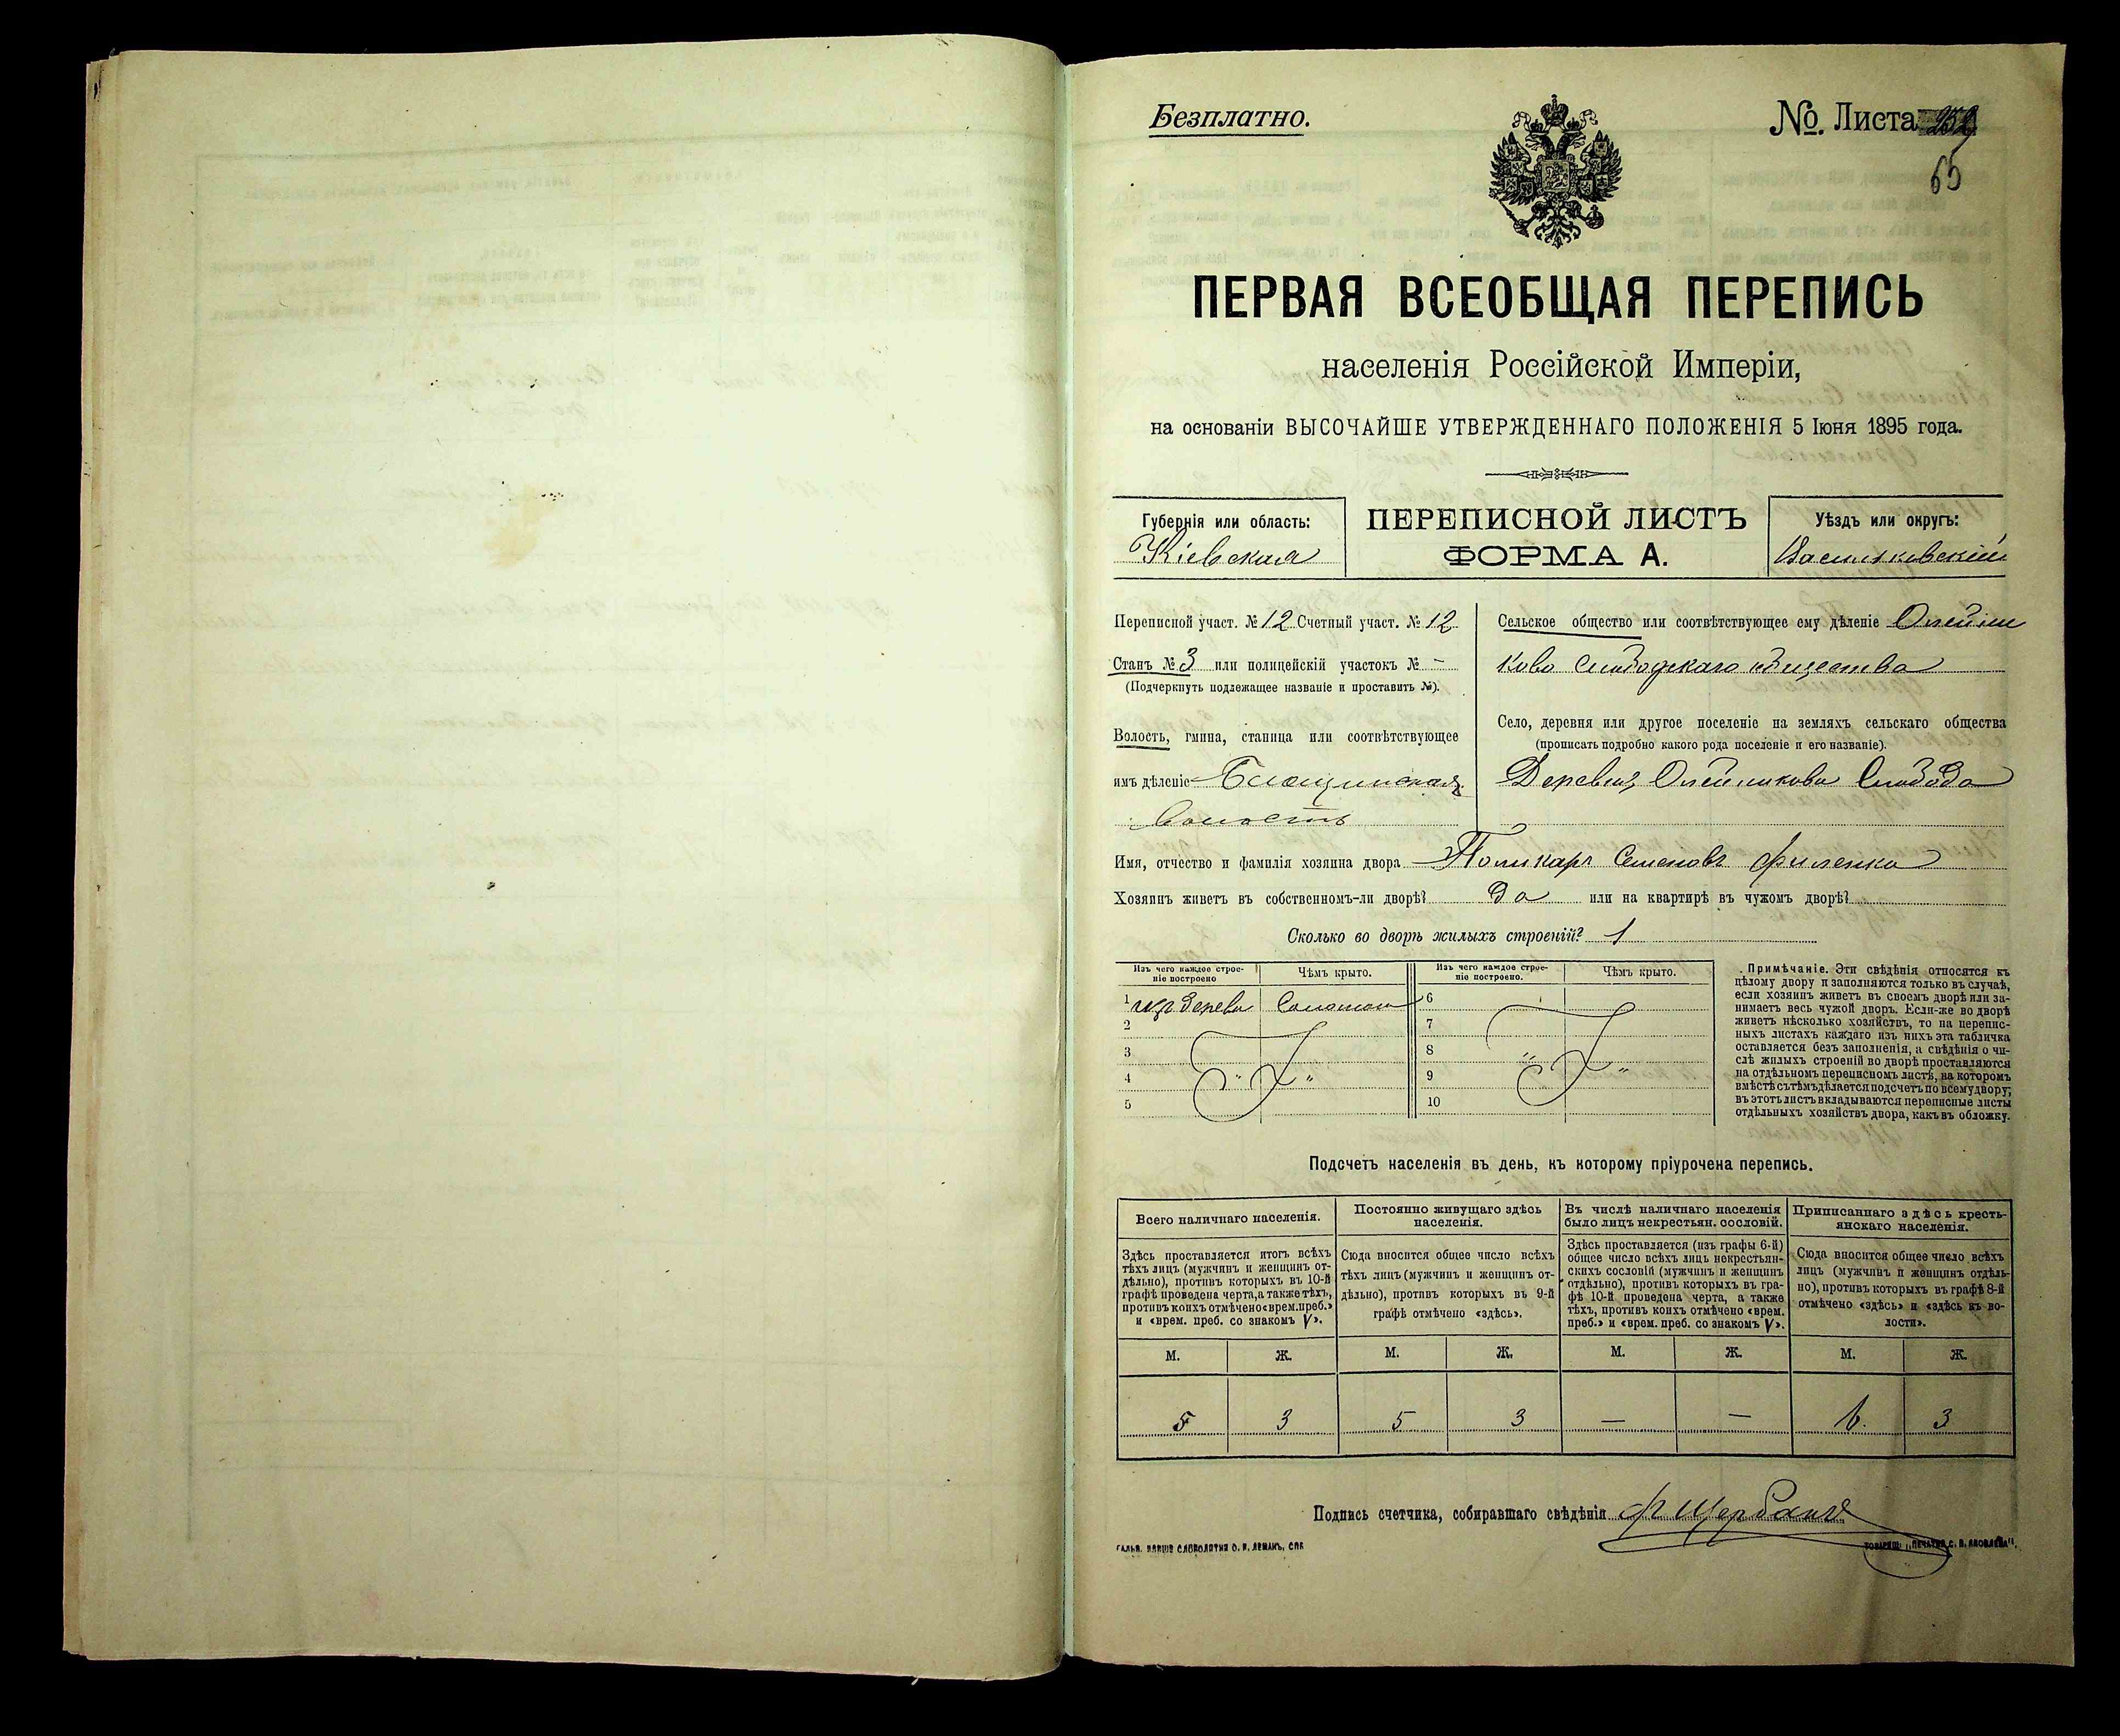 Безплатно.
№. Листа
65
ПЕРВАЯ ВСЕОБЩАЯ ПЕРЕПИСЬ
населенія Россійской Имперіи,
на основаніи ВЫСОЧАЙШЕ УТВЕРЖДЕННАГО ПОЛОЖЕНІЯ 5 Іюня 1895 года.
Губернія или область:
Кіевская
ПЕРЕПИСНОЙ ЛИСТЪ
ФОРМА А.
Уѣздъ или округъ:
Васильковскій
Переписной участ. № 12 Счетный участ. № 12
Станъ № 3 или полицейскій участокъ № -
(Подчеркнуть подлежащее названіе и проставить №).
Волость, гмина, станица или соотвѣтствующее
имъ дѣленіе
волость
Сельское общество или соотвѣтствующее ему дѣленіе Олейни
ково Слободскаго общества
Село, деревня или другое поселеніе на земляхъ сельскаго общества
(прописать подробно какого рода поселеніе и его названіе).
Деревня Олейникова Слобода
Имя, отчество и фамилія хозяина двора Поликарп Семеновъ Филенко
Хозяинъ живетъ въ собственномъ-ли дворѣ? да или на квартирѣ въ чужомъ дворѣ?
Сколько во дворѣ жилыхъ строеній? 1
Изъ чего каждое строе-
ніе построено
Чѣмъ крыто.
Изъ чего каждое строе-
ніе построено.
Чѣмъ крыто.
1 изъ дерева Соломою 6
2 7
3 8
4 " " 9 " "
5 10
Примѣчаніе. Эти свѣдѣнія относятся къ
цѣлому двору и заполняются только въ случаѣ,
если хозяинъ живетъ въ своемъ дворѣ или за-
нимаетъ весь чужой дворъ. Если-же во дворѣ
живетъ нѣсколько хозяйствъ, то на перепис-
ныхъ листахъ каждаго изъ нихъ эта табличка
оставляется безъ заполненія, а свѣдѣнія о чи-
слѣ жилыхъ строеній во дворѣ проставляются
на отдѣльномъ переписномъ листѣ, на которомъ
вмѣстѣ съ тѣмъ дѣлается подсчетъ по всему двору;
въ этотъ листъ вкладываются переписные листы
отдѣльныхъ хозяйствъ двора, какъ въ обложку.
Подсчетъ населенія въ день, къ которому пріурочена перепись.
Всего наличнаго населенія.
Здѣсь проставляется итогъ всѣхъ
тѣхъ лицъ (мужчинъ и женщинъ от-
дѣльно), противъ которыхъ въ 10-й
графѣ проведена черта, а также тѣхъ,
противъ коихъ отмѣчено «врем. преб.»
и «врем. преб. со знакомъ V».
Постоянно живущаго здѣсь
населенія.
Сюда вносится общее число всѣхъ
тѣхъ лицъ (мужчинъ и женщинъ от-
дѣльно), противъ которыхъ въ 9-й
графѣ отмѣчено «здѣсь».
Въ числѣ наличнаго населенія
было лицъ некрестьян. сословій.
Здѣсь проставляется (изъ графы 6-й)
общее число всѣхъ лицъ некрестьян-
скихъ сословій (мужчинъ и женщинъ
отдѣльно), противъ которыхъ въ гра-
фѣ 10-й проведена черта, а также
тѣхъ, противъ коихъ отмѣчено «врем.
преб.» и «врем. преб. со знакомъ V».
Приписаннаго здѣсь кресть-
янскаго населенія.
Сюда вносится общее число всѣхъ
лицъ (мужчинъ и женщинъ отдѣль-
но), противъ которыхъ въ графѣ 8-й
отмѣчено «здѣсь» и «здѣсь въ во-
лости».
М. Ж. М. Ж. М. Ж. М. Ж.
5 3 5 3 — — 3
Подпись счетчика, собиравшаго свѣдѣнія